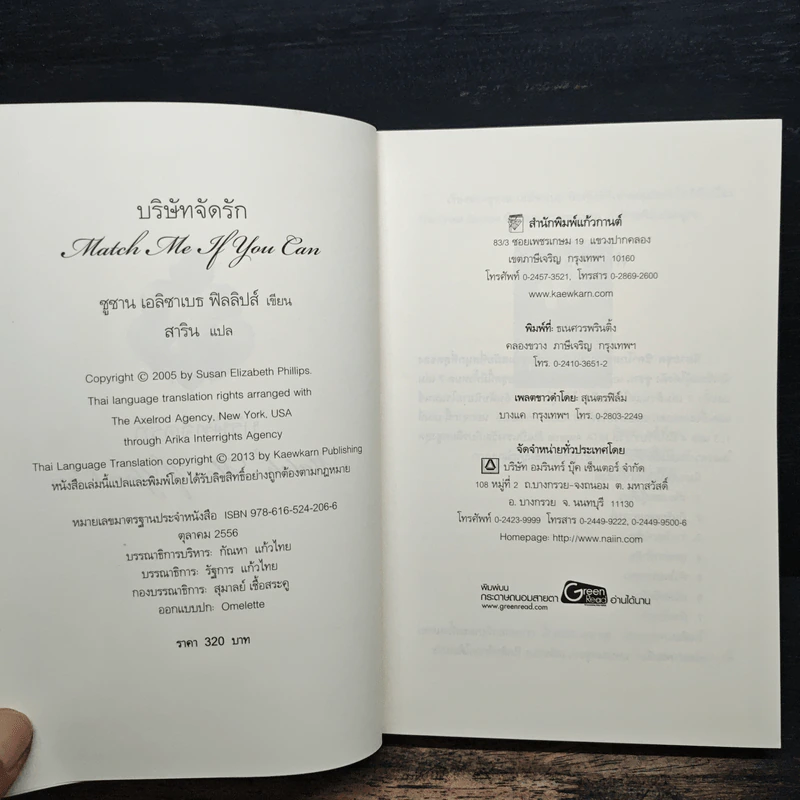 บริษัทจัดรัก
Match Me If You Can
ซูซาน เอลิซาเบธ ฟิลลิปส์ เขียน
สาริน แปล
Copyright © 2005 by Susan Elizabeth Phillips.
Thai language translation rights arranged with
The Axelrod Agency, New York, USA
through Arika Interrights Agency
Thai Language Translation copyright © 2013 by Kaewkarn Publishing
หนังสือเล่มนี้แปลและพิมพ์โดยได้รับลิขสิทธิ์อย่างถูกต้องตามกฎหมาย
หมายเลขมาตรฐานประจำหนังสือ ISBN 978-616-524-206-6
ตุลาคม 2556
บรรณาธิการบริหาร: กัณหา แก้วไทย
บรรณาธิการ: รัฐการ แก้วไทย
กองบรรณาธิการ: สุมาลย์ เชื้อสระคู
ออกแบบปก: Omelette
ราคา 320 บาท
สำนักพิมพ์แก้วกานต์
83/3 ซอยเพชรเกษม 19 แขวงปากคลอง
เขตภาษีเจริญ กรุงเทพฯ 10160
โทรศัพท์ 0-2457-3521, โทรสาร 0-2869-2600
www.kaewkarn.com
พิมพ์ที่: ธเนศวรพรินติ้ง
คลองขวาง ภาษีเจริญ กรุงเทพฯ
โทร. 0-2410-3651-2
เพลตขาวดำโดย: สุเนตรฟิล์ม
บางแค กรุงเทพฯ โทร. 0-2803-2249
จัดจำหน่ายทั่วประเทศโดย
บริษัท อมรินทร์ บุ๊ค เซ็นเตอร์ จำกัด
108 หมู่ที่ 2 ถ.บางกรวย-จงถนอม ต. มหาสวัสดิ์
อ. บางกรวย จ. นนทบุรี 11130
โทรศัพท์ 0-2423-9999 โทรสาร 0-2449-9222, 0-2449-9500-6
Homepage: http://www.naiin.com
พิมพ์บน
กระดาษถนอมสายตา Green Read อ่านได้นาน
www.greenread.com